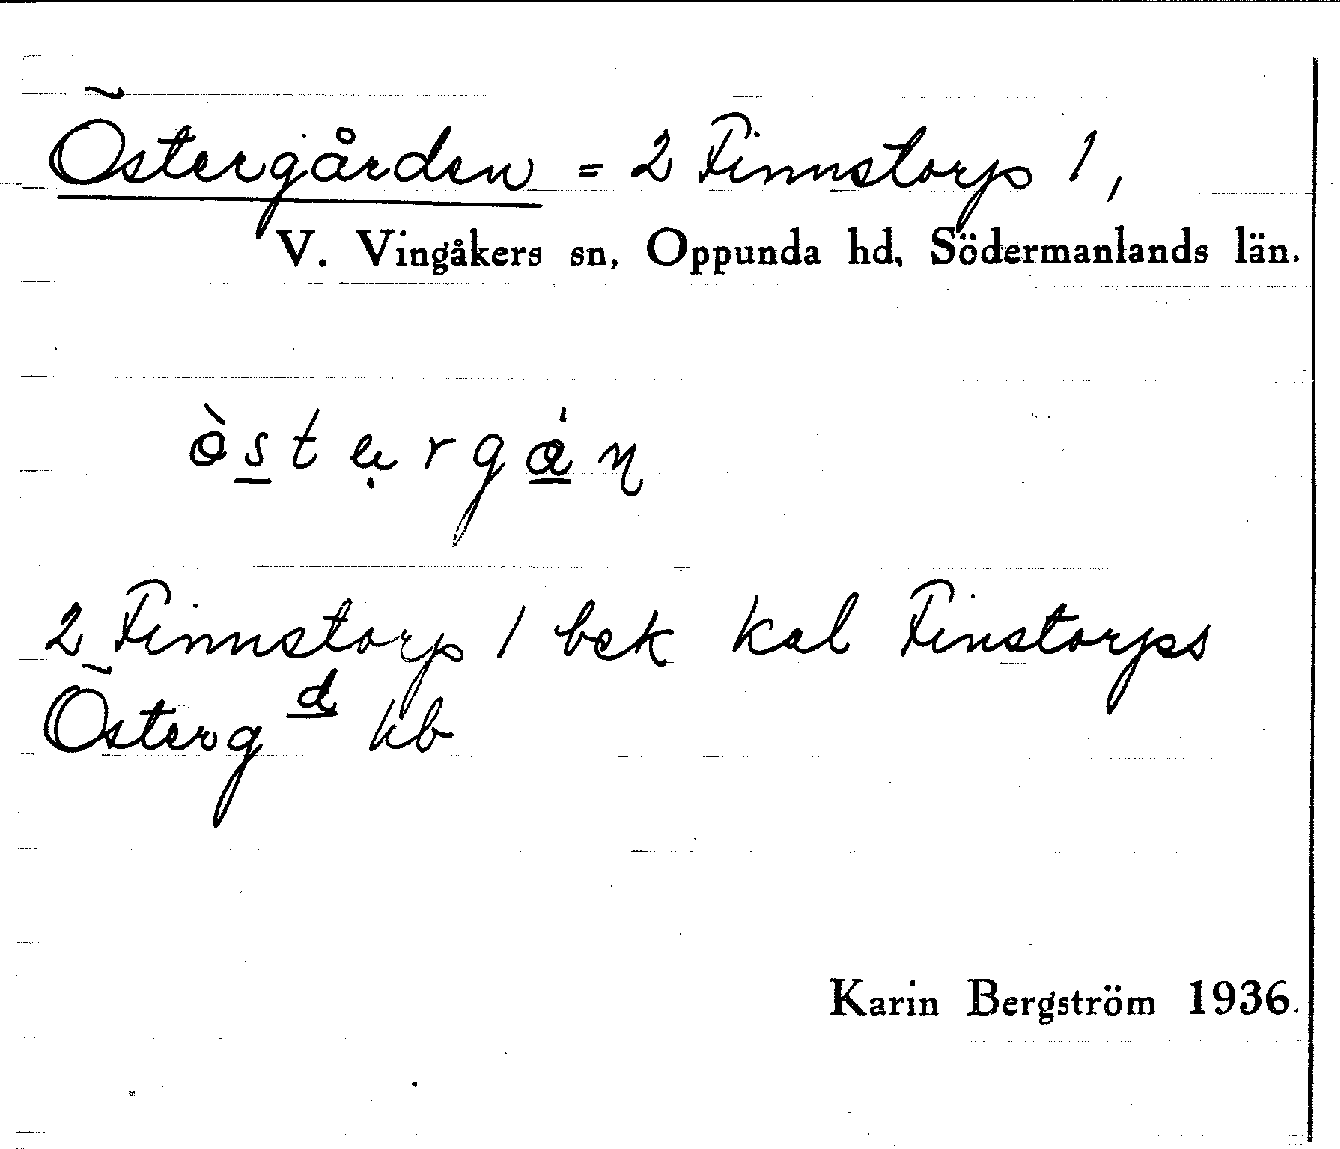 Östergården = 2 Finnstorp 1,
V. Vingåkers sn, Oppunda hd, Södermanlands län.
2 Finnstorp 1 bek kal Finstorps
Österg d hb
Karin Bergström 1936.